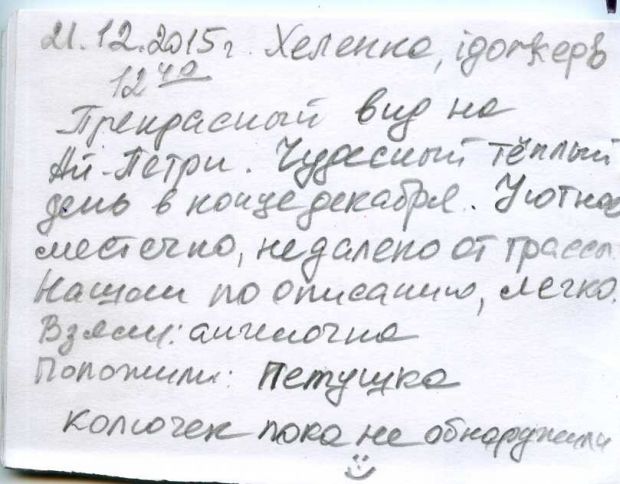 21.12.2015г. Хеленка, ідоткерв
12 40
Прекрасный вид на
Ай-Петри. Чудесный тёплый
день в конце декабря. Уютное
местечко, недалеко от трассы.
Нашли по описанию, легко.
Взяли: ангелочка
Положили: Петушка
колючек пока не обнаружили